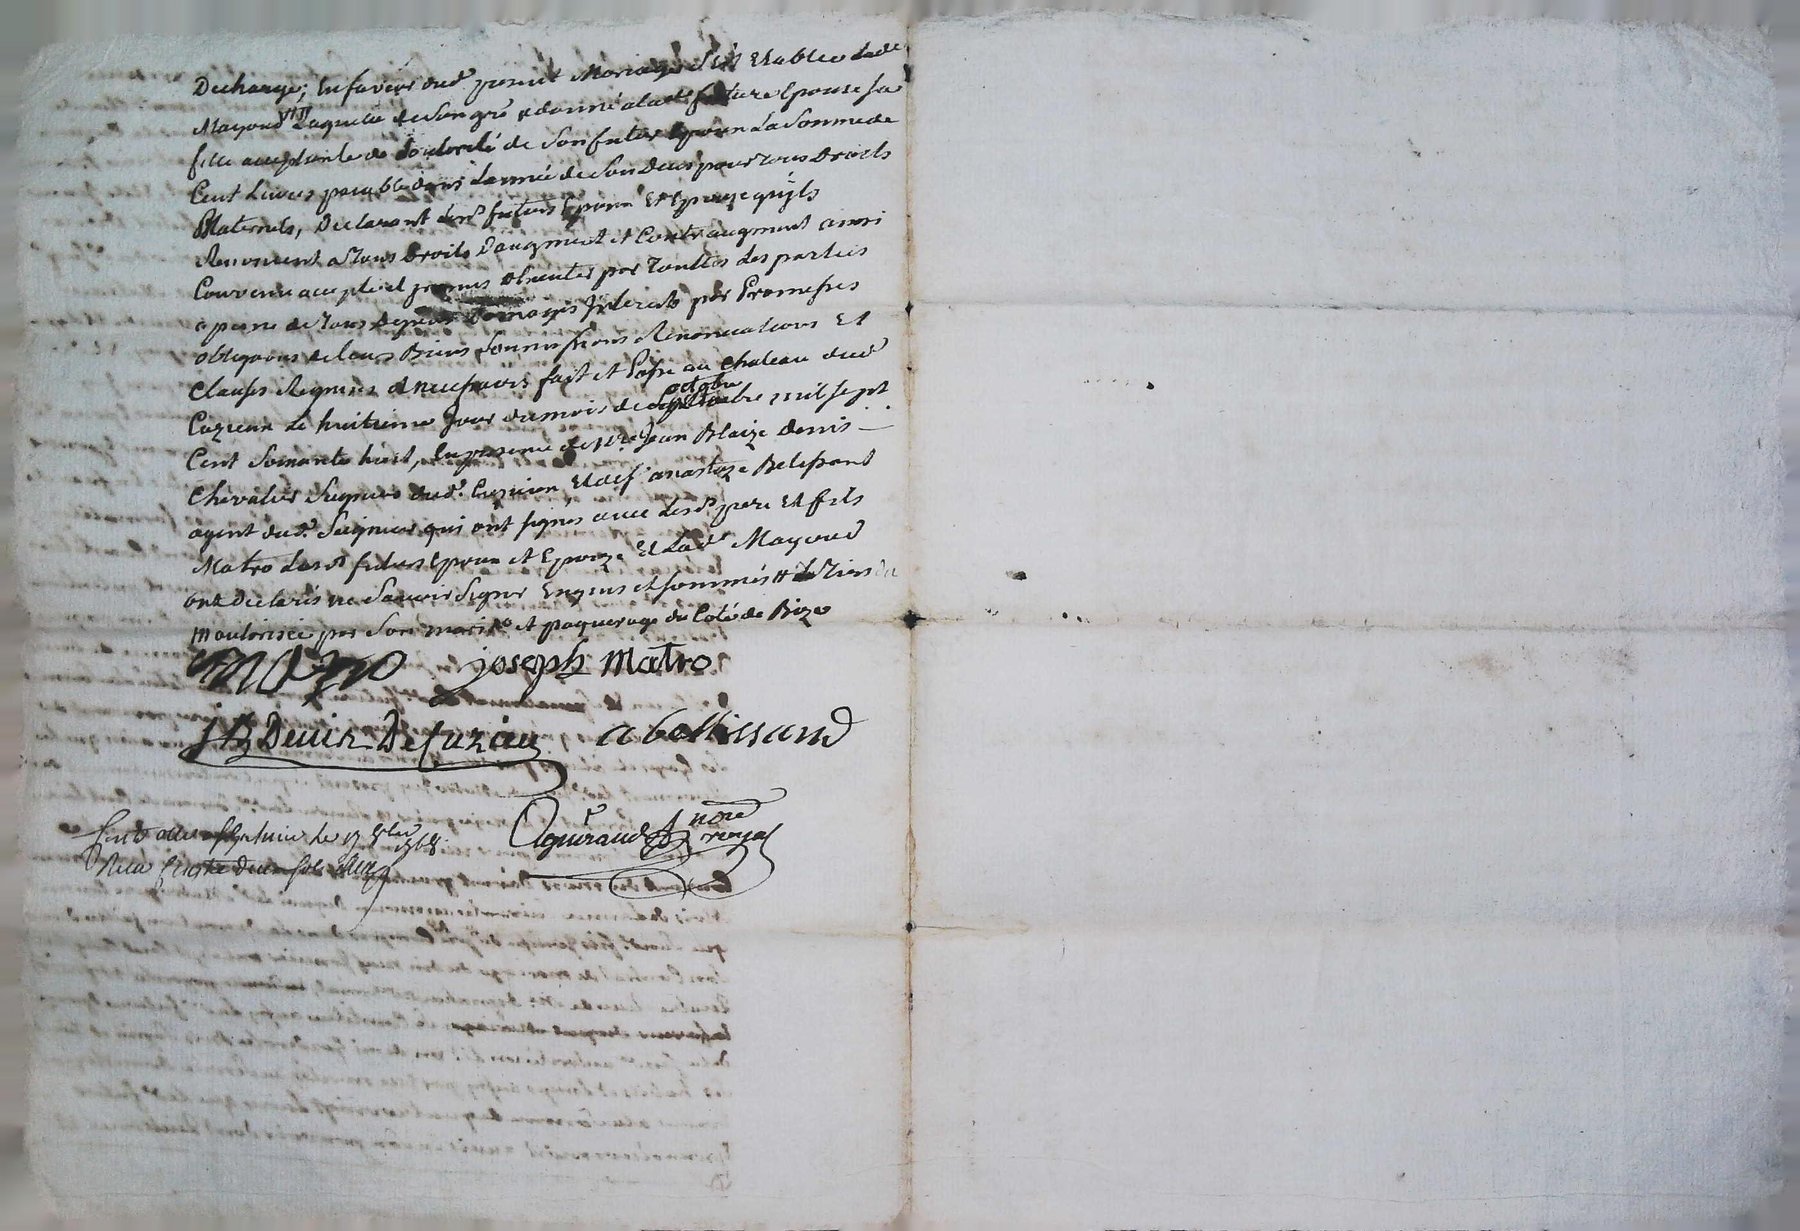 Decharge; En faveur dud. present Mariage s'est Etablie lade
Mayoud laquelle de Son gré a donné a lade future Epouse sa
fille acceptante de l'autorité de Son futur Epoux La Somme de
Cent Livres payable dans l'année de Son Deces pour tous Droits
Maternels, Declarant lesd. futurs Epoux Et Epouze quÿls
Renoncent a Tous Droits D'augment et Contraugment ainsi
Convenu accepté et promis observer par Touttes les parties
a peine de Tous Depens Domages Interests par Promesses
obligaons de leurs Biens Soumissions Renonciations Et
Clauses Requises et necessaires fait et Passé au Chateau dud.
octobre
Cuzieu Le huitieme Jour du mois de Septembre mil sept
Cent Soixante huit, En presence de Mre Jean Blaize Denis
Chevalier Seigneur dud. Cuzieu, Et de sr. anastaze Belissant
agent dud. Seigneur qui ont signés avec lesd. pere Et fils
Matro Lesd. futurs Epoux et Epouze Et Lad. Mayoud
ont declarés ne Savoir Signer Enquis et sommés
m autorisée par Son mari et paquerage du Coté de Bize
joseph Matro
JB Denis De Cuzieu a bellissand
Aguiraud nore
royal